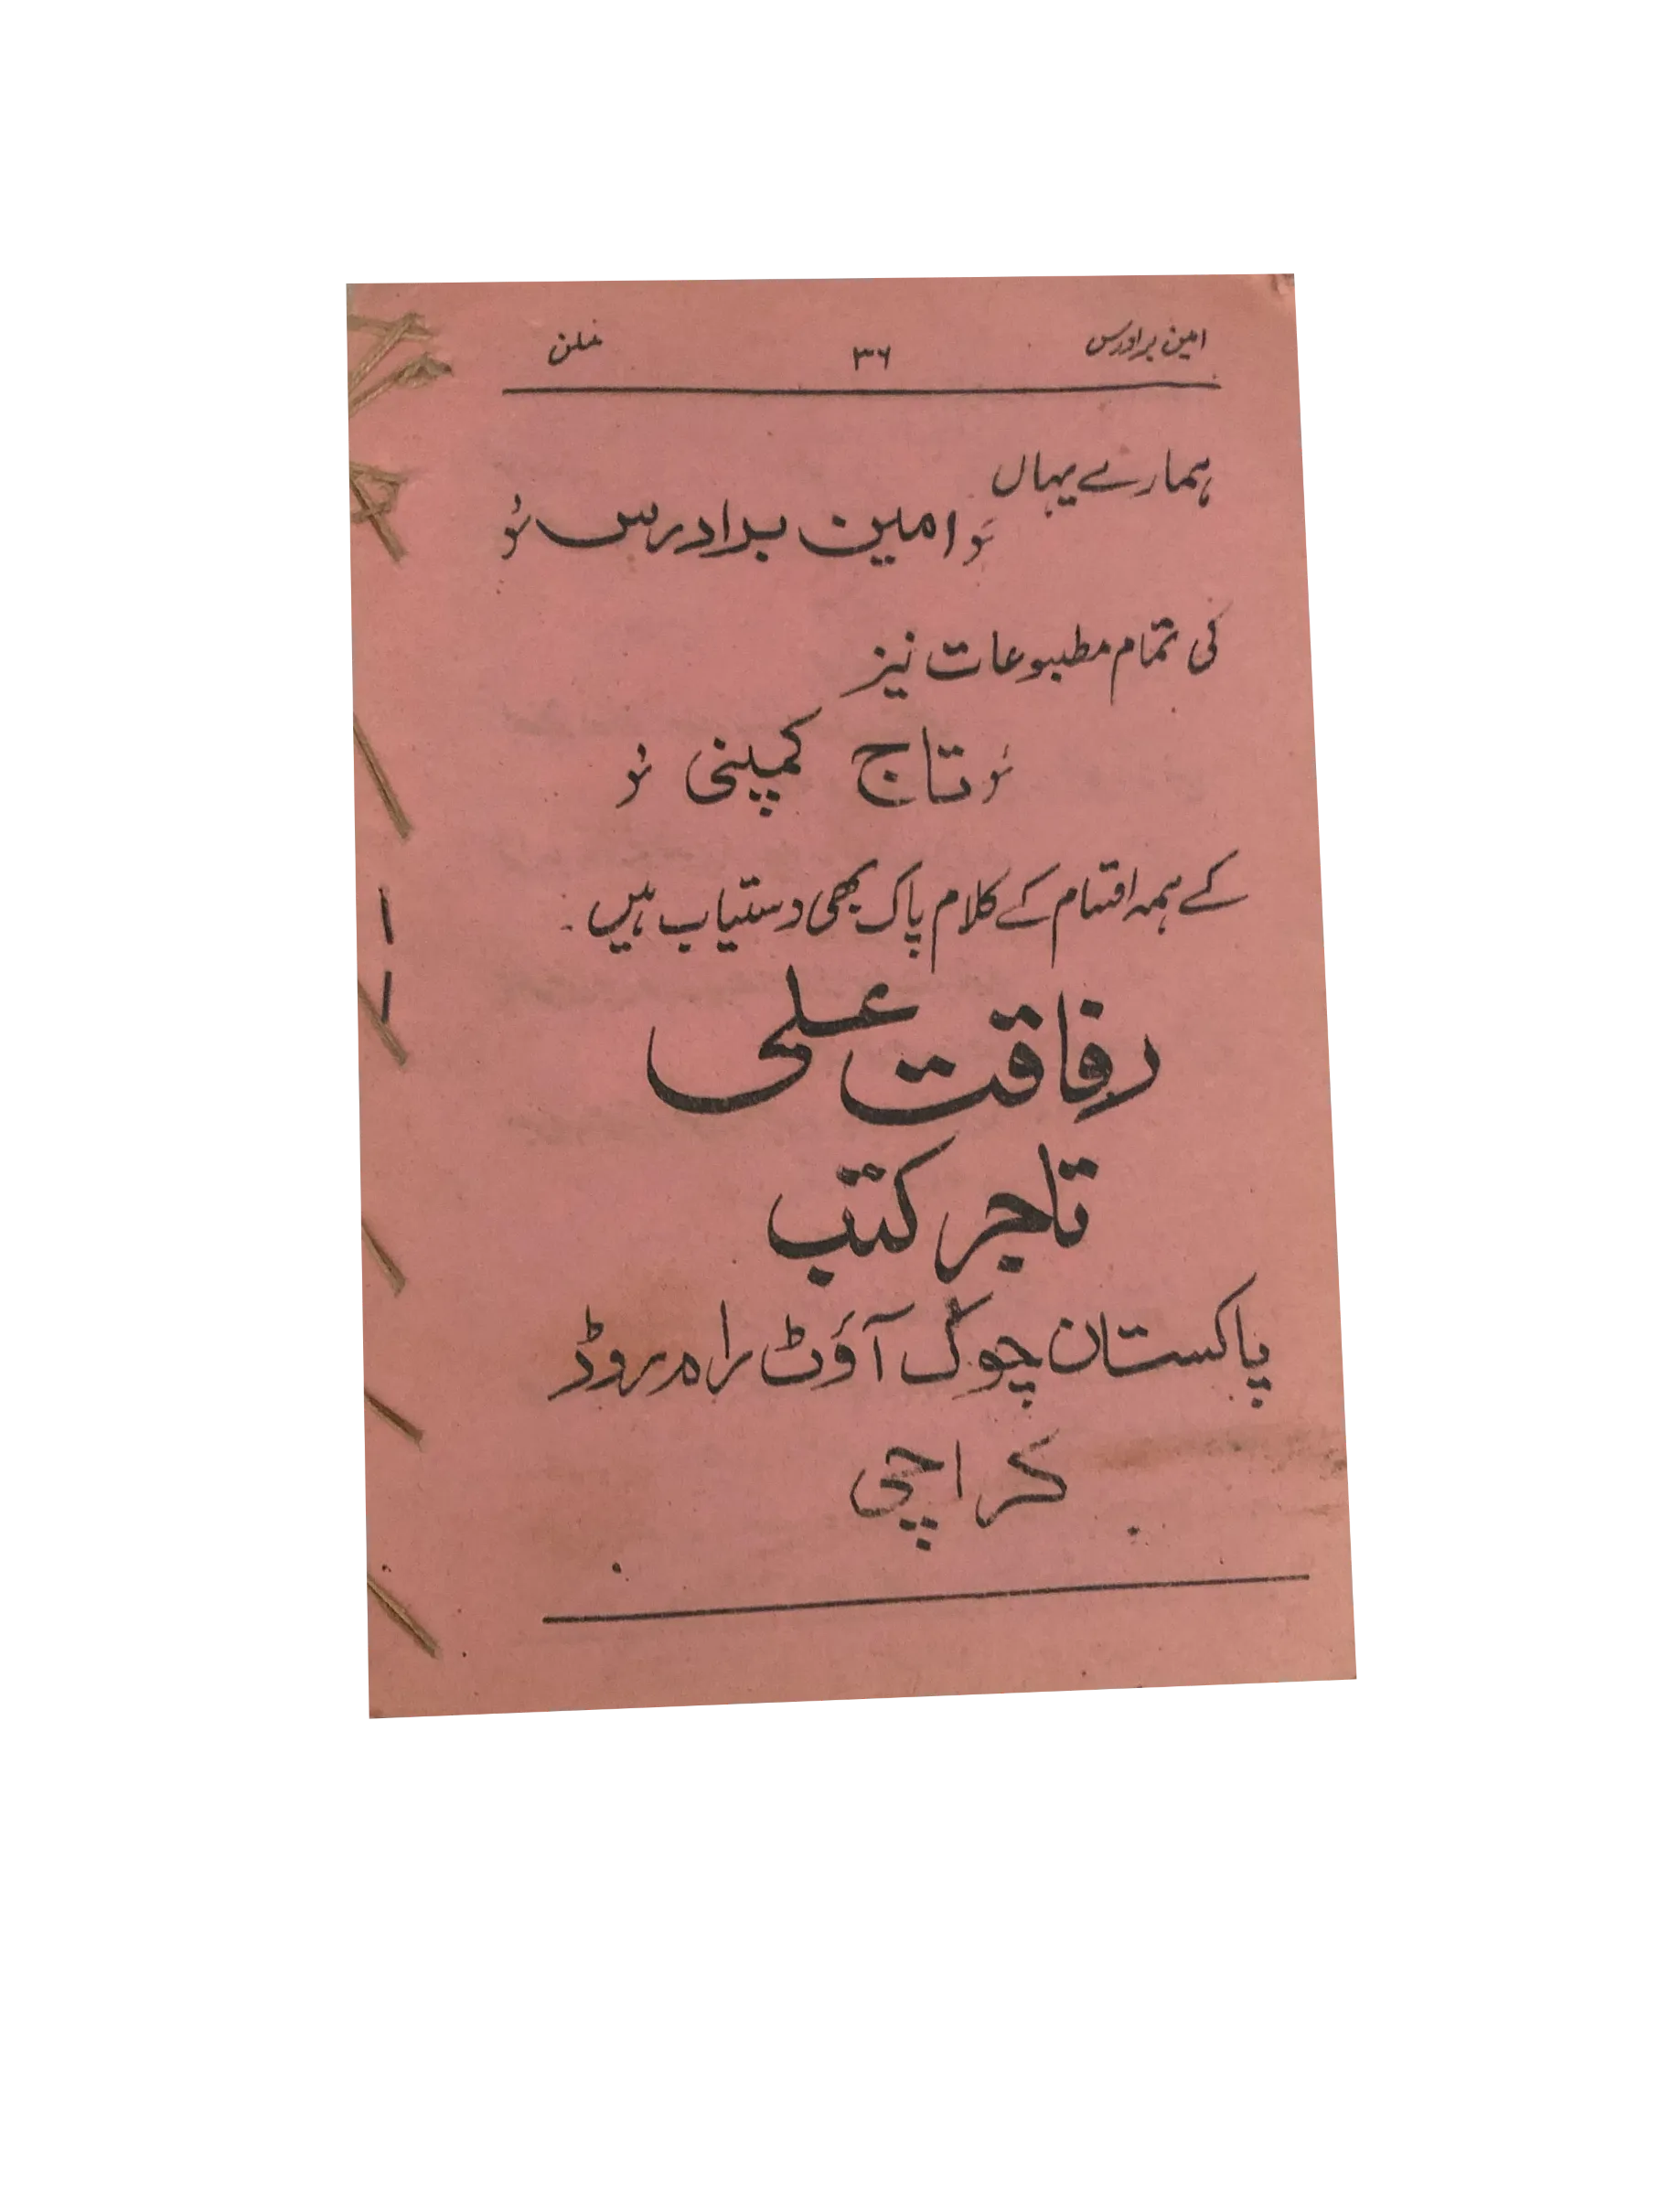 امین برادرس ۳۶ خلن
ہمارے یہاں
امین برادرس
کی تمام مطبوعات نیز
تاج کمپنی
کے ہمہ اقسام کے کلام پاک بھی دستیاب ہیں۔
رفاقت علی
تاجر کتب
پاکستان چوک آؤٹ رام روڈ
کراچی